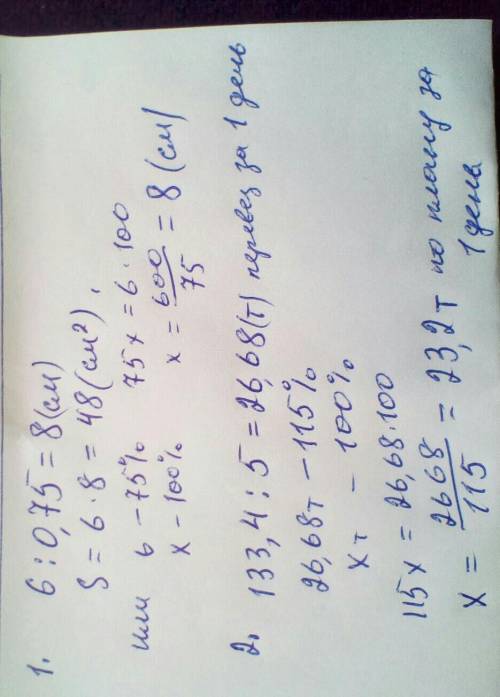 1. 6 : 0,75 = 8 (см)
S = 6 · 8 = 48 (см²).
или 6 – 75% 75x = 6 · 100
x – 100% x = 600/75 = 8 (см)
2. 133,4 : 5 = 26,68 (т) перевез за 1 день
26,68т – 115%
xт – 100%
115x = 26,68·100
x = 2668/115 = 23,2т по плану за
1 день